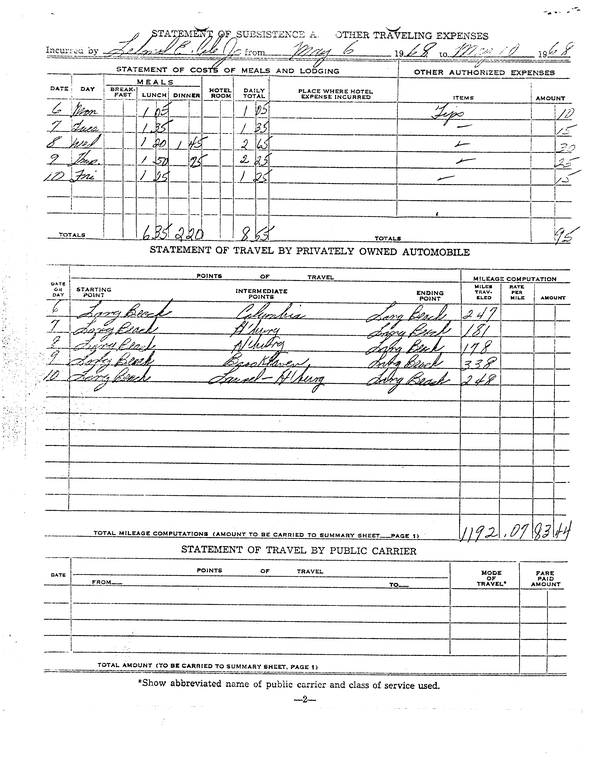 STATEMENT OF SUBSISTENCE A. OTHER TRAVELING EXPENSES
Incurred by from May 6 1968 to May 10 1968
STATEMENT OF COSTS OF MEALS AND LODGING OTHER AUTHORIZED EXPENSES
DATE DAY MEALS BREAK-FAST LUNCH DINNER HOTEL ROOM DAILY TOTAL PLACE WHERE HOTEL EXPENSE INCURRED ITEMS AMOUNT
6 Mon 1 05 1 05 Tips 10
7 Tues 1 35 1 35 — 15
8 Wed 1 20 1 45 2 65 — 30
9 1 50 75 2 25 — 25
10 Fri 1 25 1 25 — 15
TOTALS 6 35 2 20 8 55 TOTALS 95
STATEMENT OF TRAVEL BY PRIVATELY OWNED AUTOMOBILE
POINTS OF TRAVEL MILEAGE COMPUTATION
DATE OR DAY STARTING POINT INTERMEDIATE POINTS ENDING POINT MILES TRAV-ELED RATE PER MILE AMOUNT
6 Long Beach Columbia Long Beach 247
7 Long Beach H'burg Long Beach 181
8 Long Beach H'burg Long Beach 178
9 Long Beach Brookhaven Long Beach 338
10 Long Beach Laurel - H'burg Long Beach 248
TOTAL MILEAGE COMPUTATIONS (AMOUNT TO BE CARRIED TO SUMMARY SHEET PAGE 1) 1192 .07 83 44
STATEMENT OF TRAVEL BY PUBLIC CARRIER
DATE POINTS OF TRAVEL MODE OF TRAVEL* FARE PAID AMOUNT
FROM TO
TOTAL AMOUNT (TO BE CARRIED TO SUMMARY SHEET, PAGE 1)
*Show abbreviated name of public carrier and class of service used.
—2—